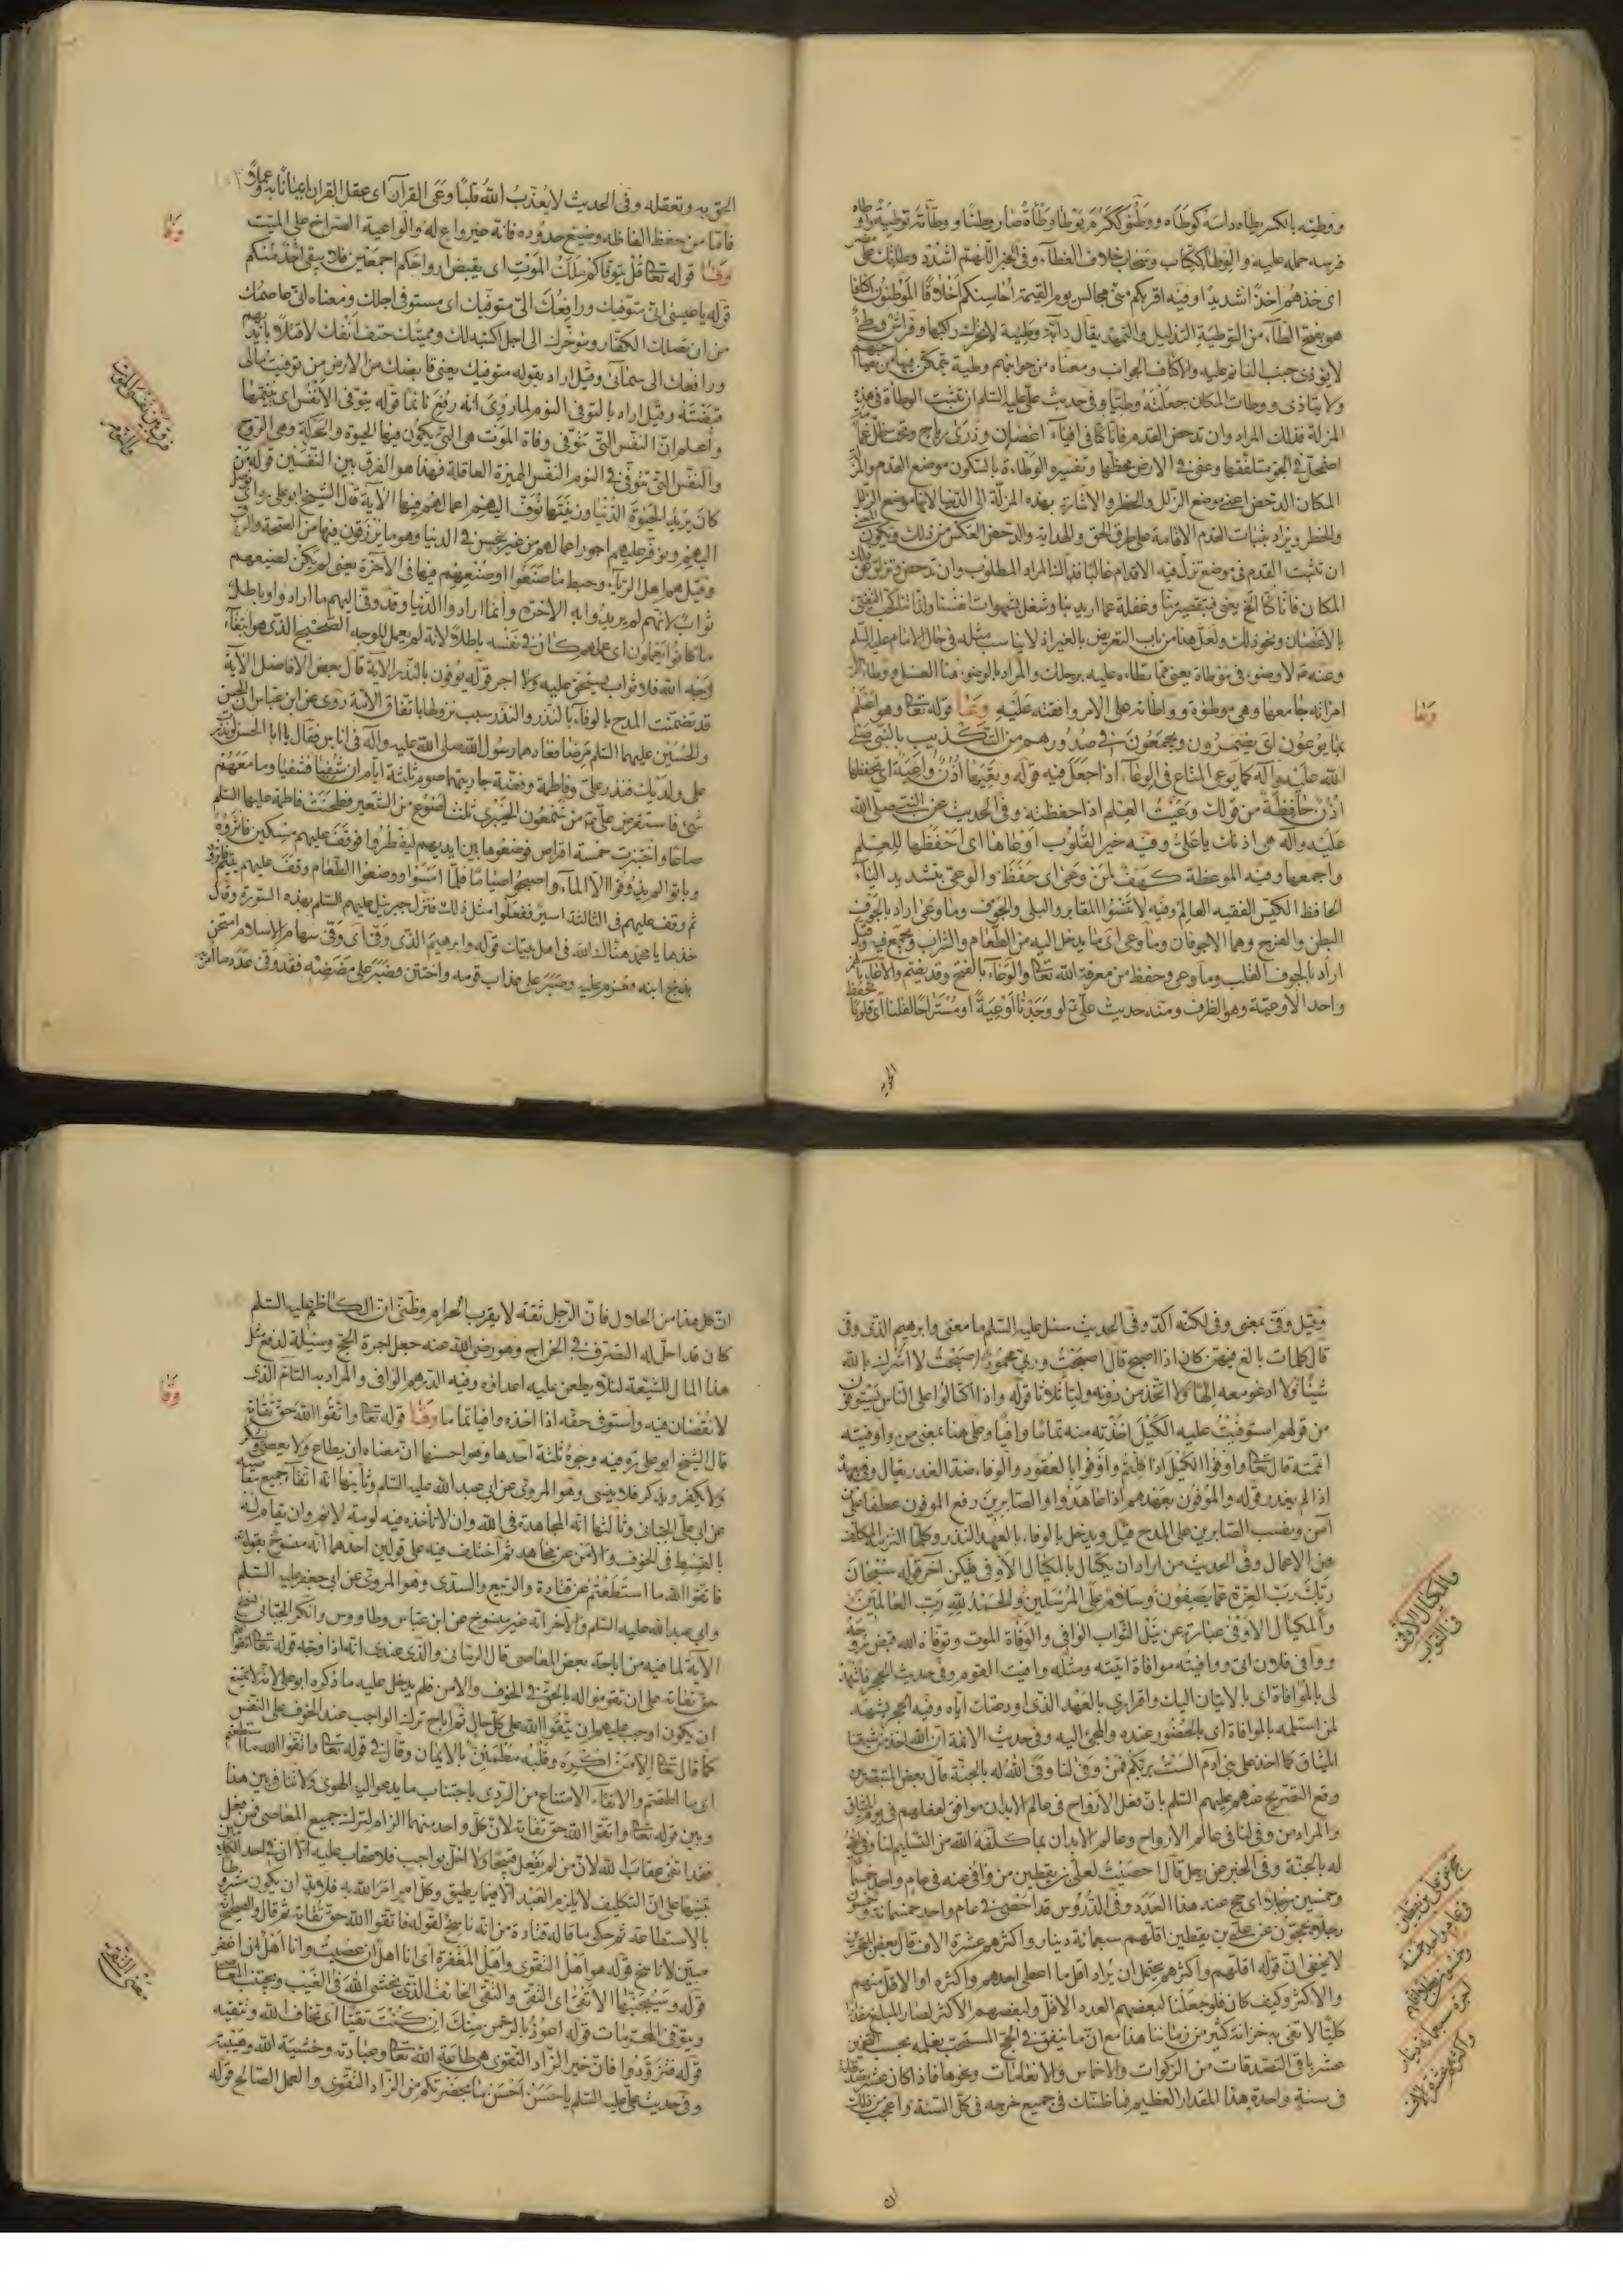 ووطئه بالكسر يطاه داسه كوطاه ووطئ ككرم يوطا وطاة صار وطئا ووطأته توطية ووطاه
فرسه حمله عليه والوطا ككتاب وسحاب خلاف الغطاء وفي الخبر اللهم اشدد وطاتك على مضر
اى خذهم اخذا شديدا وفيه اقربكم منى مجالس يوم القيمة احاسنكم اخلاقا الموطئون اكنافا
هو بفتح الطاء من التوطية التذليل والتمهيد يقال دابة وطيئة لا تحرك راكبها وفراش وطئ
لا يوذى جنب النائم عليه والاكناف الجوانب ومعناه من جوانبهم وطيئة يتمكن فيها من يصاحبهم
ولا يتاذى ووطات المكان جعلته وطيا وفي حديث على عليه السلم ان تثبت الوطاة في هذه
المزلة فذلك المراد وان تدحض القدم فانا كنا في افياء اغصان وذرى رياح وتحت ظل غمام
اضمحل في الجو متلفقها وعفى في الارض مخطها وتفسيره الوطاءة بالسكون موضع القدم والمز
المكان الدحض اعنى موضع الزلل والخطر والاشارة بهذه المزلة الى الدنيا لانها موضع الزلل
والخطر ويراد بثبات القدم الاقامة على طرق الحق والهداية والدحض العكس من ذلك ويكون المعنى
ان تثبت القدم في موضع تزل فيه الاقدام غالبا فذاك المراد المطلوب وان تدحض وتزلق عن ذلك
المكان فانا كنا الخ يعنى فبتقصير منا وغفلة عما اريد بنا وشغل بشهوات انفسنا
بالاغصان ونحو ذلك ولعل هنا من باب التعريض بالغير اذ لا يناسب مثله في حال الامام عليه السلم
وعنه ع لا وضوء في موطاة يعنى مما تطاه عليه برجلك والمراد بالوضوء هنا الغسل ووطا الرجل
امراته جامعها وهي موطوة وواطاته على الامر وافقته عليه وعا قوله تعالى وهو اعلم
بما يوعون اى يضمرون ويجمعون في صدورهم من التكذيب بالنبى صلى
الله عليه واله كما يوعى المتاع في الوعاء اذا جعل فيه قوله وتعيها اذن واعية اى تحفظها
اذن حافظة من قولك وعيت العلم اذا حفظته وفي الحديث عن النبى صلى الله
عليه واله هى اذنك يا على وفيه خير القلوب اوعاها اى احفظها للعلم
واجمعها وفيه الموعظة كهف لمن وعى اى حفظ والوعى بتشديد الياء
الحافظ الكيس الفقيه العالم وفيه لا تنسوا المقابر والبلى والجوف وما وعى اراد بالجوف
البطن والفرج وهما الاجوفان وما وعى اى ما يدخل اليه من الطعام والشراب ويجمع فيه وقيل
اراد بالجوف القلب وما وعى وحفظ من معرفة الله تعالى والوعاء بالفتح وقد يضم والاعاء بالهمز
واحد الاوعية وهو الظرف ومنه حديث على ع لو وجدنا اوعية او مستراحا لقلنا اى قلوبا تحفظ
وعا
الحق به وتعقله وفي الحديث لا يعذب الله قلبا وعى القرآن اى عقل القران ايمانا به وعملا
فاما من حفظ الفاظه وضيع حدوده فانه غير واع له والواعية الصراخ على الميت
وفا قوله تعالى قل يتوفاكم ملك الموت اى يقبض ارواحكم اجمعين فلا يبقى احد منكم
قوله يا عيسى انى متوفيك ورافعك الى متوفيك اى مستوفى اجلك ومعناه انى عاصمك
من ان تصلك الكفار وموخرك الى اجل اكتبه لك ومميتك حتف انفك لا قتلا بايديهم
ورافعك الى سمائى وقيل اراد بقوله متوفيك يعنى قابضك من الارض من توفيت مالى
قبضته وقيل اراد بالتوفى النوم لما روى انه رفع نائما قوله يتوفى الانفس اى يقبضها
واعلم ان النفس التى تتوفى وفاة الموت هى التى يكون فيها الحيوة والحركة وهى الروح
والنفس التى تتوفى في النوم النفس المميزة العاقلة فهذا هو الفرق بين النفسين قوله من
كان يريد الحيوة الدنيا وزينتها نوف اليهم اعمالهم فيها الآية قال الشيخ ابو على
اليهم ونوفر عليهم اجور اعمالهم من غير بخس في الدنيا وهو ما يرزقون فيها من الصحة والرزق
وقيل هم اهل الرياء وحبط ما صنعوا اى صنعهم فيها في الآخرة يعنى لم يكن لصنيعهم
ثواب لانهم لم يريدوا به الاخرة وانما ارادوا الدنيا وقد وفى اليهم ما ارادوا وباطل
ما كانوا يعملون اى عملهم كان في نفسه باطلا لانه لم يعمل للوجه الصحيح الذى هو ابتغاء
وجه الله فلا ثواب يستحق عليه ولا اجر قوله يوفون بالنذر الآية قال بعض الافاضل الآية
قد تضمنت المدح بالوفاء بالنذر والنذر سبب نزولها باتفاق الامة روى عن ابن عباس ان الحسن
والحسين عليهما السلم مرضا فعادهما رسول الله صلى الله عليه واله في اناس فقال يا ابا الحسن لو نذرت
على ولديك فنذر على وفاطمة وفضة جاريتهما صوم ثلثة ايام ان شفيا فشفيا وما معهم
شئ فاستقرض على ع من شمعون الخيبرى ثلث اصوع من الشعير فطحنت فاطمة عليها السلم
صاعا واختبزت خمسة اقراص فوضعوها بين ايديهم ليفطروا فوقف عليهم مسكين فاثروه
وباتوا لم يذوقوا الا الماء واصبحوا صياما فلما امسوا ووضعوا الطعام وقف عليهم يتيم فاثروه
ثم وقف عليهم في الثالثة اسير ففعلوا مثل ذلك فنزل جبرئيل عليه السلم بهذه السورة وقال
خذها يا محمد هناك الله في اهل بيتك قوله وابرهيم الذى وفى اى وفى سهام الاسلام امتحن
بذبح ابنه فعزم عليه وصبر على عذاب قومه واختتن وصبر على مضضه فقد وفى عدد ما امر به
وفا
فرق بين نفس الموت
والنوم
وقيل وفى بمعنى وفى لكنه آكد وفي الحديث سئل عليه السلم ما معنى وابرهيم الذى وفى
قال كلمات بالغ فيهن كان اذا اصبح قال اصبحت وربى محمود اصبحت لا اشرك بالله
شيئا ولا ادعو معه الها ولا اتخذ من دونه وليا ثلاثا قوله واذا اكتالوا على الناس يستوفون
من قولهم استوفيت عليه الكيل اخذته منه تماما وافيا وعلى هنا بمعنى من واوفيته
اتممته قال تعالى واوفوا الكيل اذا كلتم واوفوا بالعقود والوفاء ضد الغدر يقال وفى بعهده
اذا لم يغدر قوله والموفون بعهدهم اذا عاهدوا والصابرين رفع الموفون عطفا على من
آمن ونصب الصابرين على المدح قيل ويدخل بالوفاء بالعهد النذر وكلما التزمه المكلف
من الاعمال وفي الحديث من اراد ان يكتال بالمكيال الاوفى فليكن آخر قوله سبحان
ربك رب العزة عما يصفون وسلام على المرسلين والحمد لله رب العالمين
والمكيال الاوفى عبارة عن نيل الثواب الوافى والوفاة الموت وتوفاه الله قبض روحه
ووافى فلان اتى ووافيته موافاة اتيته ومثله وافيت القوم وفي حديث الحجر فاشهد
لى بالموافاة اى بالاتيان اليك واقرارى بالعهد الذى اودعتك اياه وفيه الحجر يشهد
لمن استلمه بالموافاة اى بالحضور عنده والمجئ اليه وفي حديث الائمة ان الله اخذ من شيعتنا
الميثاق كما اخذ على بنى آدم الست بربكم فمن وفى لنا وفى الله له بالجنة قال بعض المتبحرين
وقع التصريح عنهم عليهم السلم بان فعل الارواح في عالم الابدان موافق لفعلهم في يوم الميثاق
والمراد من وفى لنا في عالم الارواح وعالم الابدان بما كلفه الله من التسليم لنا وفى الله
له بالجنة وفي الخبر عن رجل قال احصيت لعلى بن يقطين من وافى عنه في عام واحد خمسمائة
وخمسين رجلا اى حج عنه هذا العدد وفي الدروس قد احصى في عام واحد خمسمائة وخمسون
رجلا يحجون عن على بن يقطين اقلهم سبعمائة دينار واكثرهم عشرة الاف قال بعض المتبحرين
لا يخفى ان قوله اقلهم واكثرهم يحتمل ان يراد اقل ما اعطى احدهم واكثره او الاقل منهم
والاكثر وكيف كان فلو جعلنا لبعضهم العدد الاقل ولبعضهم الاكثر لصار المبلغ مقدارا
كليا لا تفى به خزانة كثير من زماننا هذا مع ان ما ينفق في الحج المستحب يغلبه بحسب التخمين
عشر باقى التصدقات من الزكوات والاخماس والانعامات ونحوها فاذا كان عشر تصدقاته
في سنة واحدة بهذا المقدار العظيم فما ظنك في جميع خرجه في كل السنة واعجب من ذلك
فالمكيال الاوفى
في الثواب
حج عن على بن يقطين
في عام واحد خمسمائة
وخمسون رجلا اقلهم
اجرة سبعمائة دينار
واكثرهم عشرة الاف
ان كل هذا من الحلال فان الرجل ثقة لا يقرب الحرام وظنى ان الكاظم عليه السلم
كان قد احل له التصرف في الخراج وهو رضى الله عنه جعل اجرة الحج وسيلة لدفع مثل
هذا المال للشيعة لئلا يطعن عليه اعداؤه وفيه الدرهم الوافى والمراد به التام الذى
لا نقصان فيه واستوفى حقه اذا اخذه وافيا تماما وقا قوله تعالى واتقوا الله حق تقاته
قال الشيخ ابو على ره فيه وجوه ثلثة احدها وهو احسنها ان معناه ان يطاع ولا يعصى ويشكر
ولا يكفر ويذكر فلا ينسى وهو المروى عن ابى عبد الله عليه السلم وثانيها انه اتقاء جميع معاصيه
عن ابى على الجبائى وثالثها انه المجاهدة في الله وان لا تاخذه فيه لومة لائم وان يقام له
بالقسط في الخوف والامن عن مجاهد ثم اختلف فيه على قولين احدهما انه منسوخ بقوله
فاتقوا الله ما استطعتم عن قتادة والربيع والسدى وهو المروى عن ابى جعفر عليه السلم
وابى عبد الله عليه السلم والآخر انه غير منسوخ عن ابن عباس وطاووس وانكر الجبائى نسخ
الآية لما فيه من اباحة بعض المعاصى قال الرمانى والذى عندى انه اذا وجه قوله تعالى اتقوا الله
حق تقاته على ان تقوموا له بالحق في الخوف والامن فلم يدخل عليه ما ذكره ابو على لانه لا يمتنع
ان يكون اوجب عليهم ان يتقوا الله على كل حال ثم اباح ترك الواجب عند الخوف على النفس
كما قال تعالى الا من اكره وقلبه مطمئن بالايمان وقال في قوله تعالى واتقوا الله ما استطعتم
اى ما اطقتم والاتقاء الامتناع من الردى باجتناب ما يدعو اليه الهوى ولا تنافى بين هذا
وبين قوله تعالى واتقوا الله حق تقاته لان كل واحد منهما الزام لترك جميع المعاصى فمن فعل
فقد اتقى عقاب الله لان من لم يفعل قبيحا ولا اخل بواجب فلا عقاب عليه الا ان في احد الكلامين
تنبيها على ان التكليف لا يلزم العبد الا فيما يطيق وكل امر امر الله به فلا بد ان يكون مشروطا
بالاستطاعة ثم حكى ما قاله قتادة من انه ناسخ لقوله فاتقوا الله حق تقاته ثم قال والصحيح انه
مبين لا ناسخ قوله هو اهل التقوى واهل المغفرة اى انا اهل ان اتقى وانا اهل ان اغفر
قوله وسيجنبها الاتقى اى التقى والتقى الخائف الذى يخشى الله في الغيب ويجتنب المعاصى
ويتوقى المحرمات قوله اعوذ بالرحمن منك ان كنت تقيا اى تخاف الله وتتقيه
قوله فتزودوا فان خير الزاد التقوى هو طاعة الله تعالى وعبادته وخشية الله وهيبته
وفي حديث على عليه السلم يا حسن احسن ما بحضرتكم من الزاد التقوى والعمل الصالح قوله
وقا
معنى التقوى